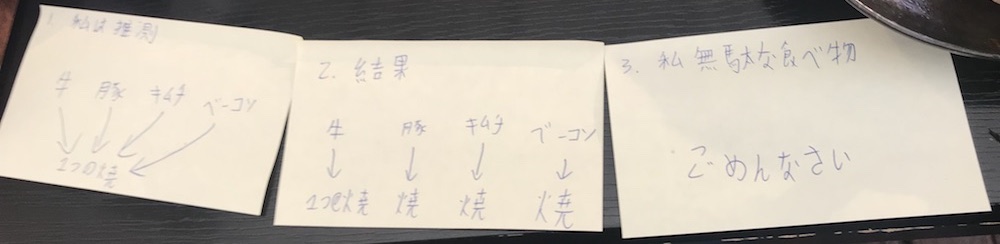 1. 私は推測
牛 豚 キムチ ベーコン
1つの焼
2. 結果
牛 豚 キムチ ベーコン
1つの焼 焼 焼 焼
3. 私無駄な食べ物
ごめんなさい